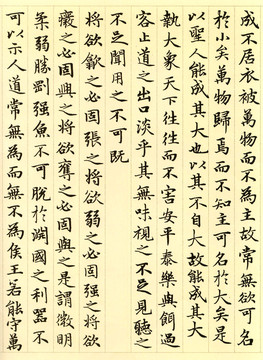 成不居衣被萬物而不為主故常無欲可名
於小矣萬物歸焉而不知主可名於大矣是
以聖人能成其大也以其不自大故能成其大
執大象天下往往而不害安平泰樂與餌過
容止道之出口淡乎其無味視之不足見聽之
不足聞用之不可既
將欲歙之必固張之將欲弱之必固強之將欲
廢之必固興之將欲奪之必固與之是謂微明
柔弱勝剛強魚不可脫於淵國之利器不
可以示人道常無為而無不為侯王若能守萬